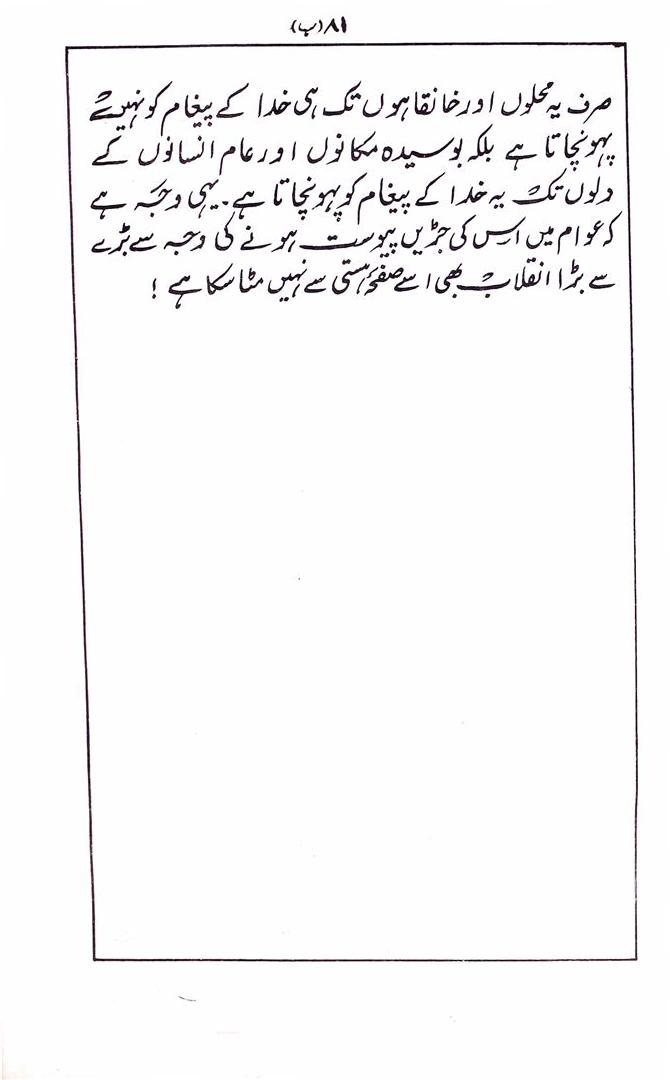 ۸۱(ب)
صرف یہ محلوں اور خانقاہوں تک ہی خدا کے پیغام کو نہیں
پہونچاتا ہے بلکہ بوسیدہ مکانوں اور عام انسانوں کے
دلوں تک یہ خدا کے پیغام کو پہونچاتا ہے۔ یہی وجہ ہے
کہ عوام میں اس کی جڑیں پیوست ہونے کی وجہ سے بڑے
سے بڑا انقلاب بھی اسے صفحۂ ہستی سے نہیں مٹا سکا ہے !